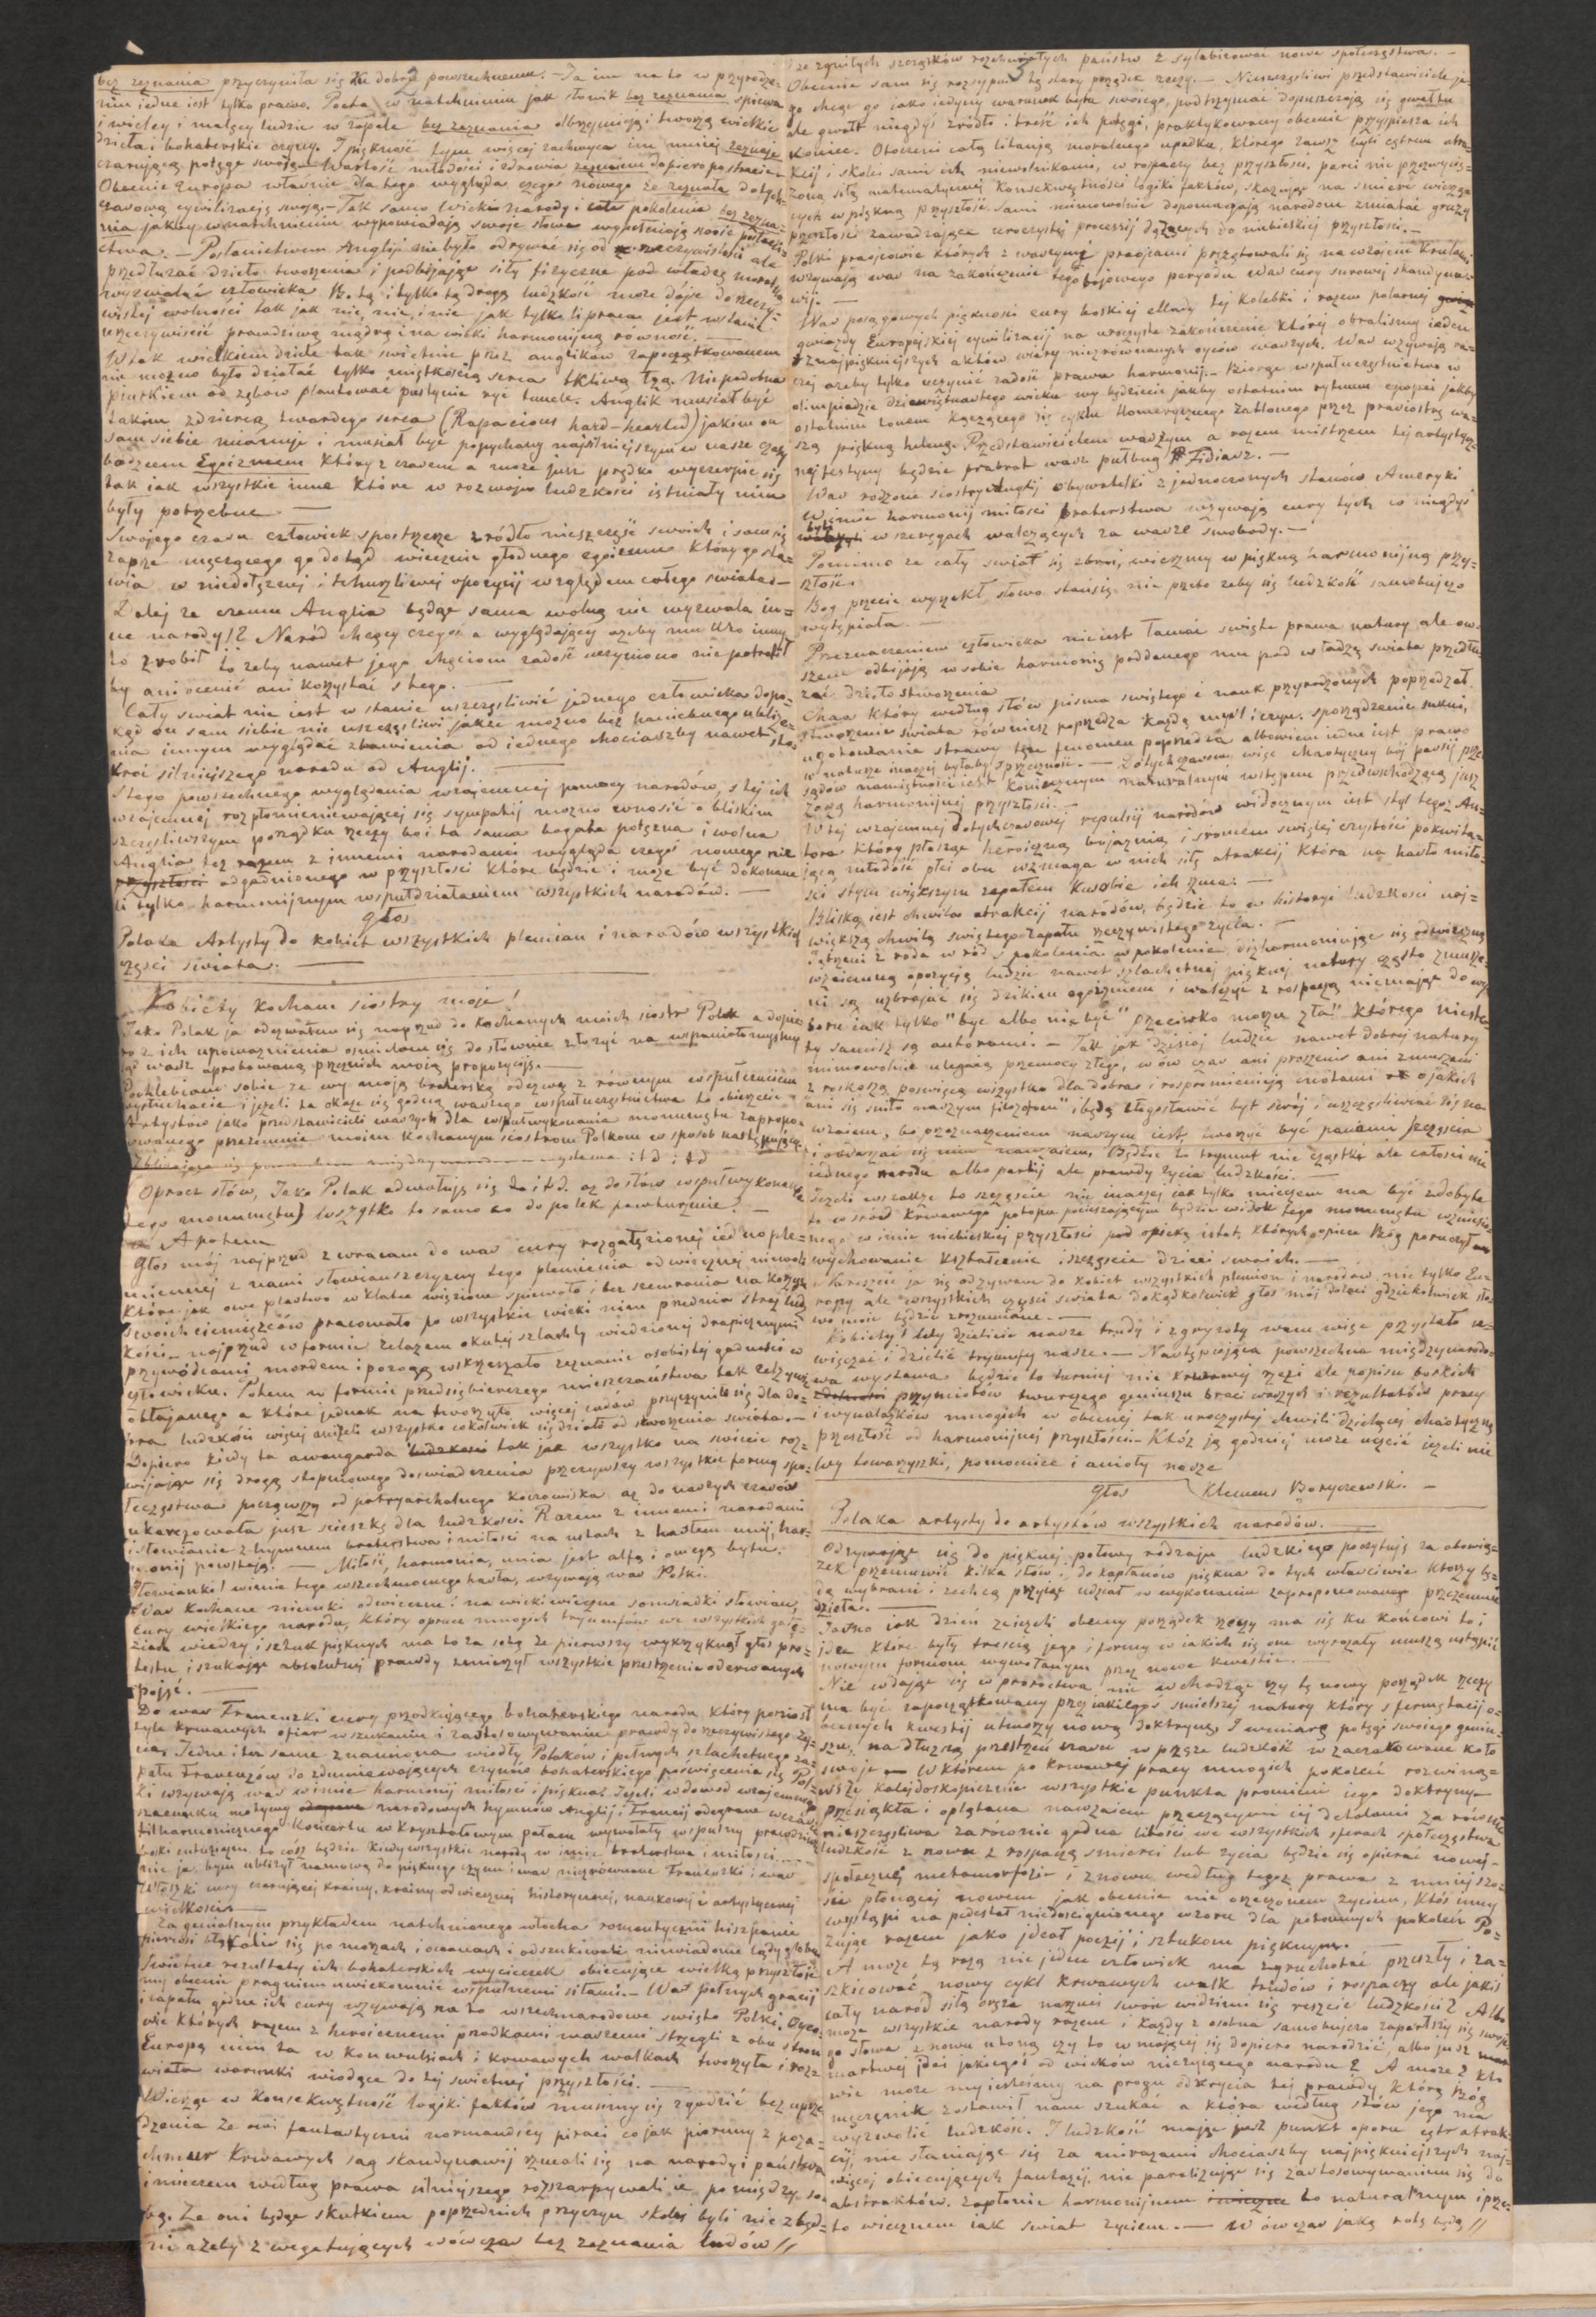 bez zeznania przyczyniła się ku dobru powszechnemu. — Ja im na to w przyrodze-
niu jedne jest tylko prawo. Poeta w natchnieniu jak słowik bez zeznania spiewa
i wielcy i malący ludzie w zapale bez zeznania olbrzymieją i tworzą wielkie
dzieła i bohaterskie czyny. I piękność tym więcej zachwyca im mniej zeznaje
czarującą potęgę swoją — Wartość młodości i zdrowia zeznajem dopiero po stracie —
Obecnie Europa właśnie dla tego wygląda czegoś nowego że zeznała dotych-
czasową cywilizacją swoją. — Tak samo wielkie narody i całe pokolenia bez zezna-
nia jakby w natchnieniu wypowiadają swoje słowa wypełniają swoje posłanni-
ctwa. — Posłanictwem Anglij nie było odrywać się od rzeczywistości ale
przedłużać dzieło tworzenia i podbijając siły fizyczne pod władzę moralną
wyzwalać człowieka Bo tą i tylko tą drogą ludzkość może dójść do rzeczy-
wistej wolności tak jak nic, nic, i nic jak tylko li praca jest w stanie
urzeczywiścić prawdziwą mądrą i na wieki harmonijną równość. —
W tak wielkiem dziele tak świetnie przez anglików zapoczątkowanem
nie możno było działać tylko miętkością serca tkliwą łzą. Niepodobna
piurkiem od zębów plantować pustynie ryć tunele. Anglik musiał być
takim zdziercą twardego serca (Rapacious hard-hearted) jakim on
sam siebie mianuje i musiał być popychany najsilniejszym w nasze czasy
bodźcem Egoizmem który z czasem a może jusz prędko wyczerpie się
tak jak wszystkie inne które w rozwoju ludzkości istniały nim
były potrzebne —
Swojego czasu człowiek spostrzeże zródło nieszczęść swoich i sam się
zaprze męczącego go dotąd wiecznie głodnego egoizmu który go sta-
wia w niedołężnej i tchurzliwej opozycij względem całego swiata. —
Dalej ze czemu Anglia będąc sama wolną nie wyzwala in-
ne narody!? Naród chcący czegoś a wyglądający ażeby mu kto inny
to zrobił to żeby nawet jego chęciom zadość uczyniono nie potrafił
by ani ocenić ani korzystać z tego. —
Cały swiat nie jest w stanie uszczęśliwić jednego człowieka dopo-
kąd on sam siebie nie uszczęśliwi jakże możno bez haniebnego ubliże-
nia innym wyglądać zbawienia od jednego chociaszby nawet sto
kroć silniejszego narodu od Anglij. —
Z tego powszechnego wyglądania wzajemnej pomocy narodów, z tej ich
wzajemnej rozpłomieniewającej się sympatij możno wnosić o bliskim
szczęśliwszym porządku rzeczy bo i ta sama bogata potężna i wolna
Anglia też razem z innemi narodami wygląda czegoś nowego nie
odgadnionego w przyszłości które będzie i może być dokonane
li tylko harmonijnym wspułdziałaniem wszystkich narodów. —
Głos
Polaka Artysty do kobiet wszystkich plemian i narodów wszystkich
części świata. —
Kobiety kochane siostry moje!
Jako Polak ja odezwałem się naprzud do kochanych moich siostr Polek a dopie-
ro z ich upoważnienia osmielam się dosłownie złożyć na wspaniałomyślny
sąd wasz aprobowaną przez nich moią propozycją. —
Pochlebiam sobie ze wy moją braterską odezwę z równym wspułczuciem
wysłuchacie i jeżeli ta okaże się godną waszego wspułuczęstnictwa to obierzecie
Artystów jako przedstawicieli waszych dla wspułwykonania monumentu zapropo-
nowanego przezemnie moim kochanym siostrom Polkom w sposób następujący.
Zbliżająca się powszechna międzynarodowa wystawa i t d i t d
(Oprocz słów, Jako Polak odwołuję się do i t d. aż do słów wspułwykonania
tego monumentu) Wszystko to samo co do polek powturzenie? —
A potem
Głos mój najprzud zwracam do was cury rozgałęzionej jednople-
miennej z nami słowiańszczyzny tego plemienia odwiecznej niewoli
które jak owe ptastwo w klatce więzione spiewało i bez szemrania na korzyść
swoich ciemiężców pracowało po wszystkie wieki nim przednia straż ludz-
kości najprzud w formie żelazem okutej szlachty wiedzionej drapieżnymi
przywódcami mordem i pożogą wskrzeszało zeznanie osobistej godności w
człowieku. Potem w formie przedsiębierczego mieszczaństwa tak zelżywie
obłajanego a które jednak na tworzyło więcej cudów przyczyniło się dla do-
bra ludzkości więcej aniżeli wszystko cokolwiek się działo od stworzenia swiata. —
Dopiero kiedy ta awangarda tak jak wszystko na świecie roz-
wijając się drogą stopniowego doswiadczenia przeżywszy wszystkie formy spo-
łeczeństwa począwszy od patryarchalnego koczowiska aż do naszych czasów
ukarczowała jusz ścieszkę dla ludzkości. Razem z innemi narodami
i słowianie z hymnem braterstwa i miłości na ustach z hasłem unij, har-
monij powstają. — Miłość, harmonia, unia jest alfą i omegą bytu.
Słowianki! w imie tego wszechmocnego hasła, wzywają was Polki.
Was kochane niemki odwieczne i na wieki wieczne somsiadki słowian,
cury wielkiego narodu, który oprucz mnogich tryumfów we wszystkich gałę-
ziach wiedzy i sztuk pięknych ma to za sobą że pierwszy wykrzyknął głos pro-
testu i szukając absolutnej prawdy zmierzył wszystkie przestrzenie oderwanych
pojęć. —
Do was Francuzki cury przodkującego bohaterskiego narodu który poniosł
tyle krwawych ofiar w szukaniu i zastosowywaniu prawdy do rzeczywistego ży-
cia. Jedne i też same znamiona wiodły Polaków i pełnych szlachetnego za-
pału Francuzów do zdumiewających czynów bohaterskiego poświęcenia się Pol-
ki wzywają was w imie harmonij miłości i piękna! Jeżeli w dowód wzajemnego
szacunku motywy narodowych hymnów Anglij i Francij odegrane wczasie
filharmonicznego koncertu w kryształowym pałacu wywołały wspulny prawdziwie
boski entuziazm, to cósz będzie kiedy wszystkie narody w imie braterstwa i miłosci. —
nie ja, bym ubliżył namową do pięknego czynu i was niezrównane Francuzki i was
Włoszki cury czarującej krainy, krainy odwiecznej historycznej, naukowej i artystycznej
wielkości. —
Za genialnym przykładem natchnionego włocha romantyczni hiszpanie
pierwsi błąkali się po morzach i oceanach i odszukiwali niewiadome lądy globu
Świetne rezultaty ich bohaterskich wycieczek obiecujące wielką przyszłość
my obecnie pragniem uwiekomnić wspulnemi siłami. — Was pełnych gracij
i zapału, godne ich cury wzywają na to wszechnarodowe swięto Polki. Ojco-
wie których razem z heroicznemi przodkami waszemi strzegli z obu stron
Europę nim ta w konwulsiach i krwawych walkach tworzyła i roz-
wiała warunki wiodące do tej świetnej przyszłości. —
Wierząc w konsekwętność logiki faktów musimy się zgodzić bez uprze-
dzenia że owi fantastyczni normandscy piraci co jak pioruny z poza-
chmur krwawych sag skandynawij rzucali się na narody i państwa
i mieczem według prawa silniejszego rozszarpywali je pomiędzy so-
bą. Że oni będąc skutkiem poprzednich przyczyn skolei byli niezbęd-
ni ażeby z wegetujących wówczas bez zeznania ludów //
ze zgniłych szczątków rozchwianych państw z sylabizować nowe społeczęstwa. —
Obecnie sam się rozsypuje tą stary porządek rzeczy. — Nieszczęśliwi przedstawiciele je-
go chcąc go jako jedyny warunek bytu swoiego, podtrzymać dopuszczają się gwałtu
ale gwałt niegdyś zródło i treść ich potęgi, praktykowany obecnie przyspiesza ich
koniec. Otoczeni całą litanją moralnego upadku, którego zawsz byli cętrem atra-
kcij i skolei sami ich niewolnikami, w rospaczy bez przyszłości, parci nie przezwycię-
żoną siłą matematycznej konsekwętności logiki faktów, skazując na smierć wierzą-
cych w piękną przyszłość. Sami mimowolnie dopomagają narodom zmiatać gruzy
przeszłości zawadzające uroczystej processij dążących do niebieskiej przyszłości. —
Polki praojcowie których z waszymi praojcami przątowali się na wzajem krulami
wzywają was na zakończenie tego bojowego peryodu was cury surowej skandyna-
wij. —
Was posągowych piękności cury boskiej ellady tej kolebki i razem polarnej
gwiazdy Europejskiej cywilizacij na uroczyste zakończenie której obraliśmy jeden
z najpiękniejszych aktów wiary niezrównanych ojców waszych. Was wzywają ra-
czej ażeby tylko uczynić zadość prawu harmonij. — Biorąc wspułuczęstnictwo w
olimpiadzie dziewiętnastego wieku wy będziecie jakby ostatnim rytmem epopei jakby
ostatnim tonem łączącego się cyklu Homerycznego zaklonego przez prasiostrę wa-
szą piękną helenę. Przedstawicielem waszym a razem mistrzem tej artystycz-
nej festyny będzie prabrat wasz pułbug Fidiasz. —
Was rodzone siostry Anglij Obywatelki zjednoczonych stanów Ameryki
w imie harmonij miłości braterstwa wzywają cury tych co niegdyś
byli w szeregach walczących za wasze swobody. —
Pomimo ze cały swiat się zbroi, wierzmy w piękną harmonijną przy-
szłość.
Bog przecie wyrzekł słowo stańsię nie przeto żeby się ludzkość samobujczo
wytępiała. —
Przeznaczeniem człowieka nie jest łamać swięte prawa natury ale ow-
szem odbijają w sobie harmonię poddanego mu pod władzę swiata przedłu-
żać dzieło stworzenia
Chaos który według słów pisma swiętego i nauk przyrodzonych poprzedzał
stworzenie swiata równiesz poprzedza każdą myśl i czyn. sporządzenie sukni,
ugotowanie strawy ten fenomen poprzedza albowiem jedne jest prawo
w naturze inaczej byłaby sprzeczność. — Dotychczasowy więc chaotyczny bój passij prze-
sądów namiętności jest koniecznym naturalnym wstępem przedwschodzącą jusz
zorzą harmonijnej przyszłości. —
W tej wzajemnej dotychczasowej repulsij narodów widocznym jest styl tegoż Au-
tora który płosząc heroiczną bojaźnią i sromem swiętej czystości pokwita-
jącą młodość płci obu wzmaga w nich siłę atrakcij która na hasło miło-
ści stym większym zapałem kusobie ich rzuca. —
Bliską jest chwila atrakcij narodów, będzie to w historji ludzkosci naj-
większą chwilą swiętego zapału rzeczywistego życia. —
Pędzeni z roda w ród s pokolenia w pokolenie dizharmoniując się odwieczną
wzajemną opozycją ludzie nawet szlachetnej pięknej natury często zmusze-
ni są uzbrajać się dzikim egoizmem i walczyć z rospaczą niemając do wy-
boru jak tylko "być albo nie być" przeciwko morzu zła! którego nieste-
ty samisz są autorami. — Tak jak dzisiaj ludzie nawet dobrej natury
mimowolnie ulegają przemocy złego, w ów czas ani proszeni ani zmuszeni
z roskoszą poswięcą wszystko dla dobra i rospromienieją cnotami o jakich
ani się sniło naszym filozofom" i będą błogosławić byt swój i uszczęśliwiać się na
wzaiem, bo przeznaczeniem naszym jest tworzyć być panami szczęscia
i obdarzać się nim nawzaiem. Będzie to tryumf nie cząstki ale całości nie
jednego narodu albo partij ale prawdy życia ludzkości. —
Jeżeli wszakże to szczęście nie inaczej jak tylko mieczem ma być zdobyte
to w sród krwawego potopu pocieszającym będzie widok tego monumentu wzniesio-
nego w imie niebieskiej przyszłości pod opieką istot, których opiece Bóg poruczył
wychowanie kształcenie i szczęście dzieci swoich. —
Nareszcie ja się odzywam do kobiet wszystkich plemion i narodów nie tylko Eu-
ropy ale wszystkich części świata dokądkolwiek głos mój doleci gdziekolwiek sło-
wo moie będzie zrozumiane. —
Kobiety! Wy dzielicie nasze trudy i zgryzoty wam więc przystało u-
więczać i dzielić tryumfy nasze. — Następująca powszechna międzynarodo-
wa wystawa będzie to turniej nie krwawej rzezi ale popisu boskich
przymiotów twurczego geniuszu braci waszych i rezultatów pracy
i wynalazków mnogich w obecnej tak uroczystej chwili dzielącej chaotyczną
przeszłość od harmonijnej przyszłości. — Któż ją godniej może uczcić jeżeli nie
Wy towarzyszki, pomocnice i anioły nasze
Głos Klemens Boryczewski. —
Polaka artysty do artystów wszystkich narodów. —
Odzywając się do pięknej połowy rodzaju ludzkiego poczytuję za obowią-
zek przemuwić kilka słów i do kapłanów piękna do tych własciwie ktorzy bę-
dą wybrani i zechcą przyjąć udział w wykonaniu zaproponowanego przezemnie
dzieła. —
Jasno jak dzień jeżeli obecny porządek rzeczy ma się ku końcowi to i
idea które były trescią jego i formy w jakich się one wyrażały muszą ustąpić
nowym formom wywołanym przez nowe kwestie. —
Nie wdając się w proroctwa nie wchodząc czy tą nowy porządek rzeczy
ma być zapoczątkowany przez jakiegoś smielszej natury który s fermętacij o-
becnych kwestij utworzy nową doktrynę. I w miarę potęgi swojego geniu-
szu, na dłuszą przestrzeń czasu w przęże ludzkość w zaczarowane koło
swoje — W którem po krwawej pracy mnogich pokoleń rozwinąw-
wszy kalejdoskopicznie wszystkie punkta promieni jego doktryny
przesiąkła i oplątana nawzaiem przeczącymi jej detalami za równo
nieszczęsliwa zarównie godna litości we wszystkich sferach społeczęstwa
ludzkość z nowu z rospaczą smierci lub życia będzie się opierać nowej-
społecznej metamorfozie i znowu według tegoż prawa z mniejszo-
ści płonącej nowem jak obecnie nie orzeczonem życiem, Ktoś inny
wystąpi na piedestał niedościgninego wzoru dla potomnych pokoleń Po-
zując razem jako ideał poezij i sztukom pięknym. —
A może tą rażą nie jeden człowiek ma zgruchotać przeszły i za-
szkicować nowy cykl krwawych walk trudów i rospaczy ale jakiś
cały naród siłą oręża narzuci swoie widzimi się reszcie ludzkości? Albo
może wszystkie narody razem i każdy z osobna samobujczo zaparłszy się swoje-
go słowa z nowu utoną czy to w mającej się dopiero narodzić, albo jusz
martwej idei jakiegoś od wieków nieżyjącego narodu? A może? kto
wie może my iesteśmy na progu odkrycia tej prawdy, którą Bóg
męczęnik zostawił nam szukać a która według słów jego ma
wyzwolić ludzkość. I ludzkość mając jusz punkt oporu cętr atrak-
cij, nie słaniając się za mirażami chociaszby najpiękniejszych naj-
więcej obiecujących fantazij, nie paraliżując się zastosowywaniem się do
abstraktów. zapłonie harmonijnem to naturalnym i prze-
to wiecznem jak swiat życiem. — W ówczas jaką rolę będą //